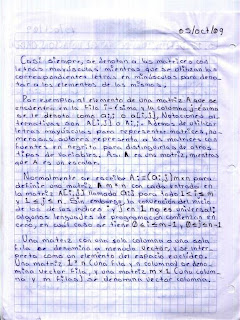 05/oct/09
Casi siempre, se denotan a las matrices con
letras mayúsculas mientras que se utilizan las
correspondientes letras en minúsculas para deno-
tar a los elementos de las mismas.
Por ejemplo, al elemento de una matriz A que se
encuentra en la fila i-ésima y la columna j-ésima
se le denota como aij o a[i,j]. Notaciones al-
ternativas son A[i,j] o Ai,j. Además de utilizar
letras mayúsculas para representar matrices, nu-
merosos autores representan a las matrices con
fuentes en negrita para distinguirlas de otros
tipos de variables. Así A es una matriz, mientras
que A es un escalar.
Normalmente se escribe A:=(ai,j)mxn para
definir una matriz A m×n con cada entrada en
la matriz A[i,j] llamada aij para todo 1≤i≤m
y 1≤j≤n. Sin embargo, la convención del inicio
de los índices i y j en 1 no es universal:
algunos lenguajes de programación comienzan en
cero, en cuál caso se tiene 0≤i≤m-1, 0≤j≤n-1
Una matriz con una sola columna o una sola
fila se denomina a menudo vector, y se inter-
preta como un elemento del espacio euclídeo.
Una matriz 1×n (una fila y n columnas) se deno-
mina vector fila, y una matriz m×1 (una colum-
na y m filas) se denomina vector columna.